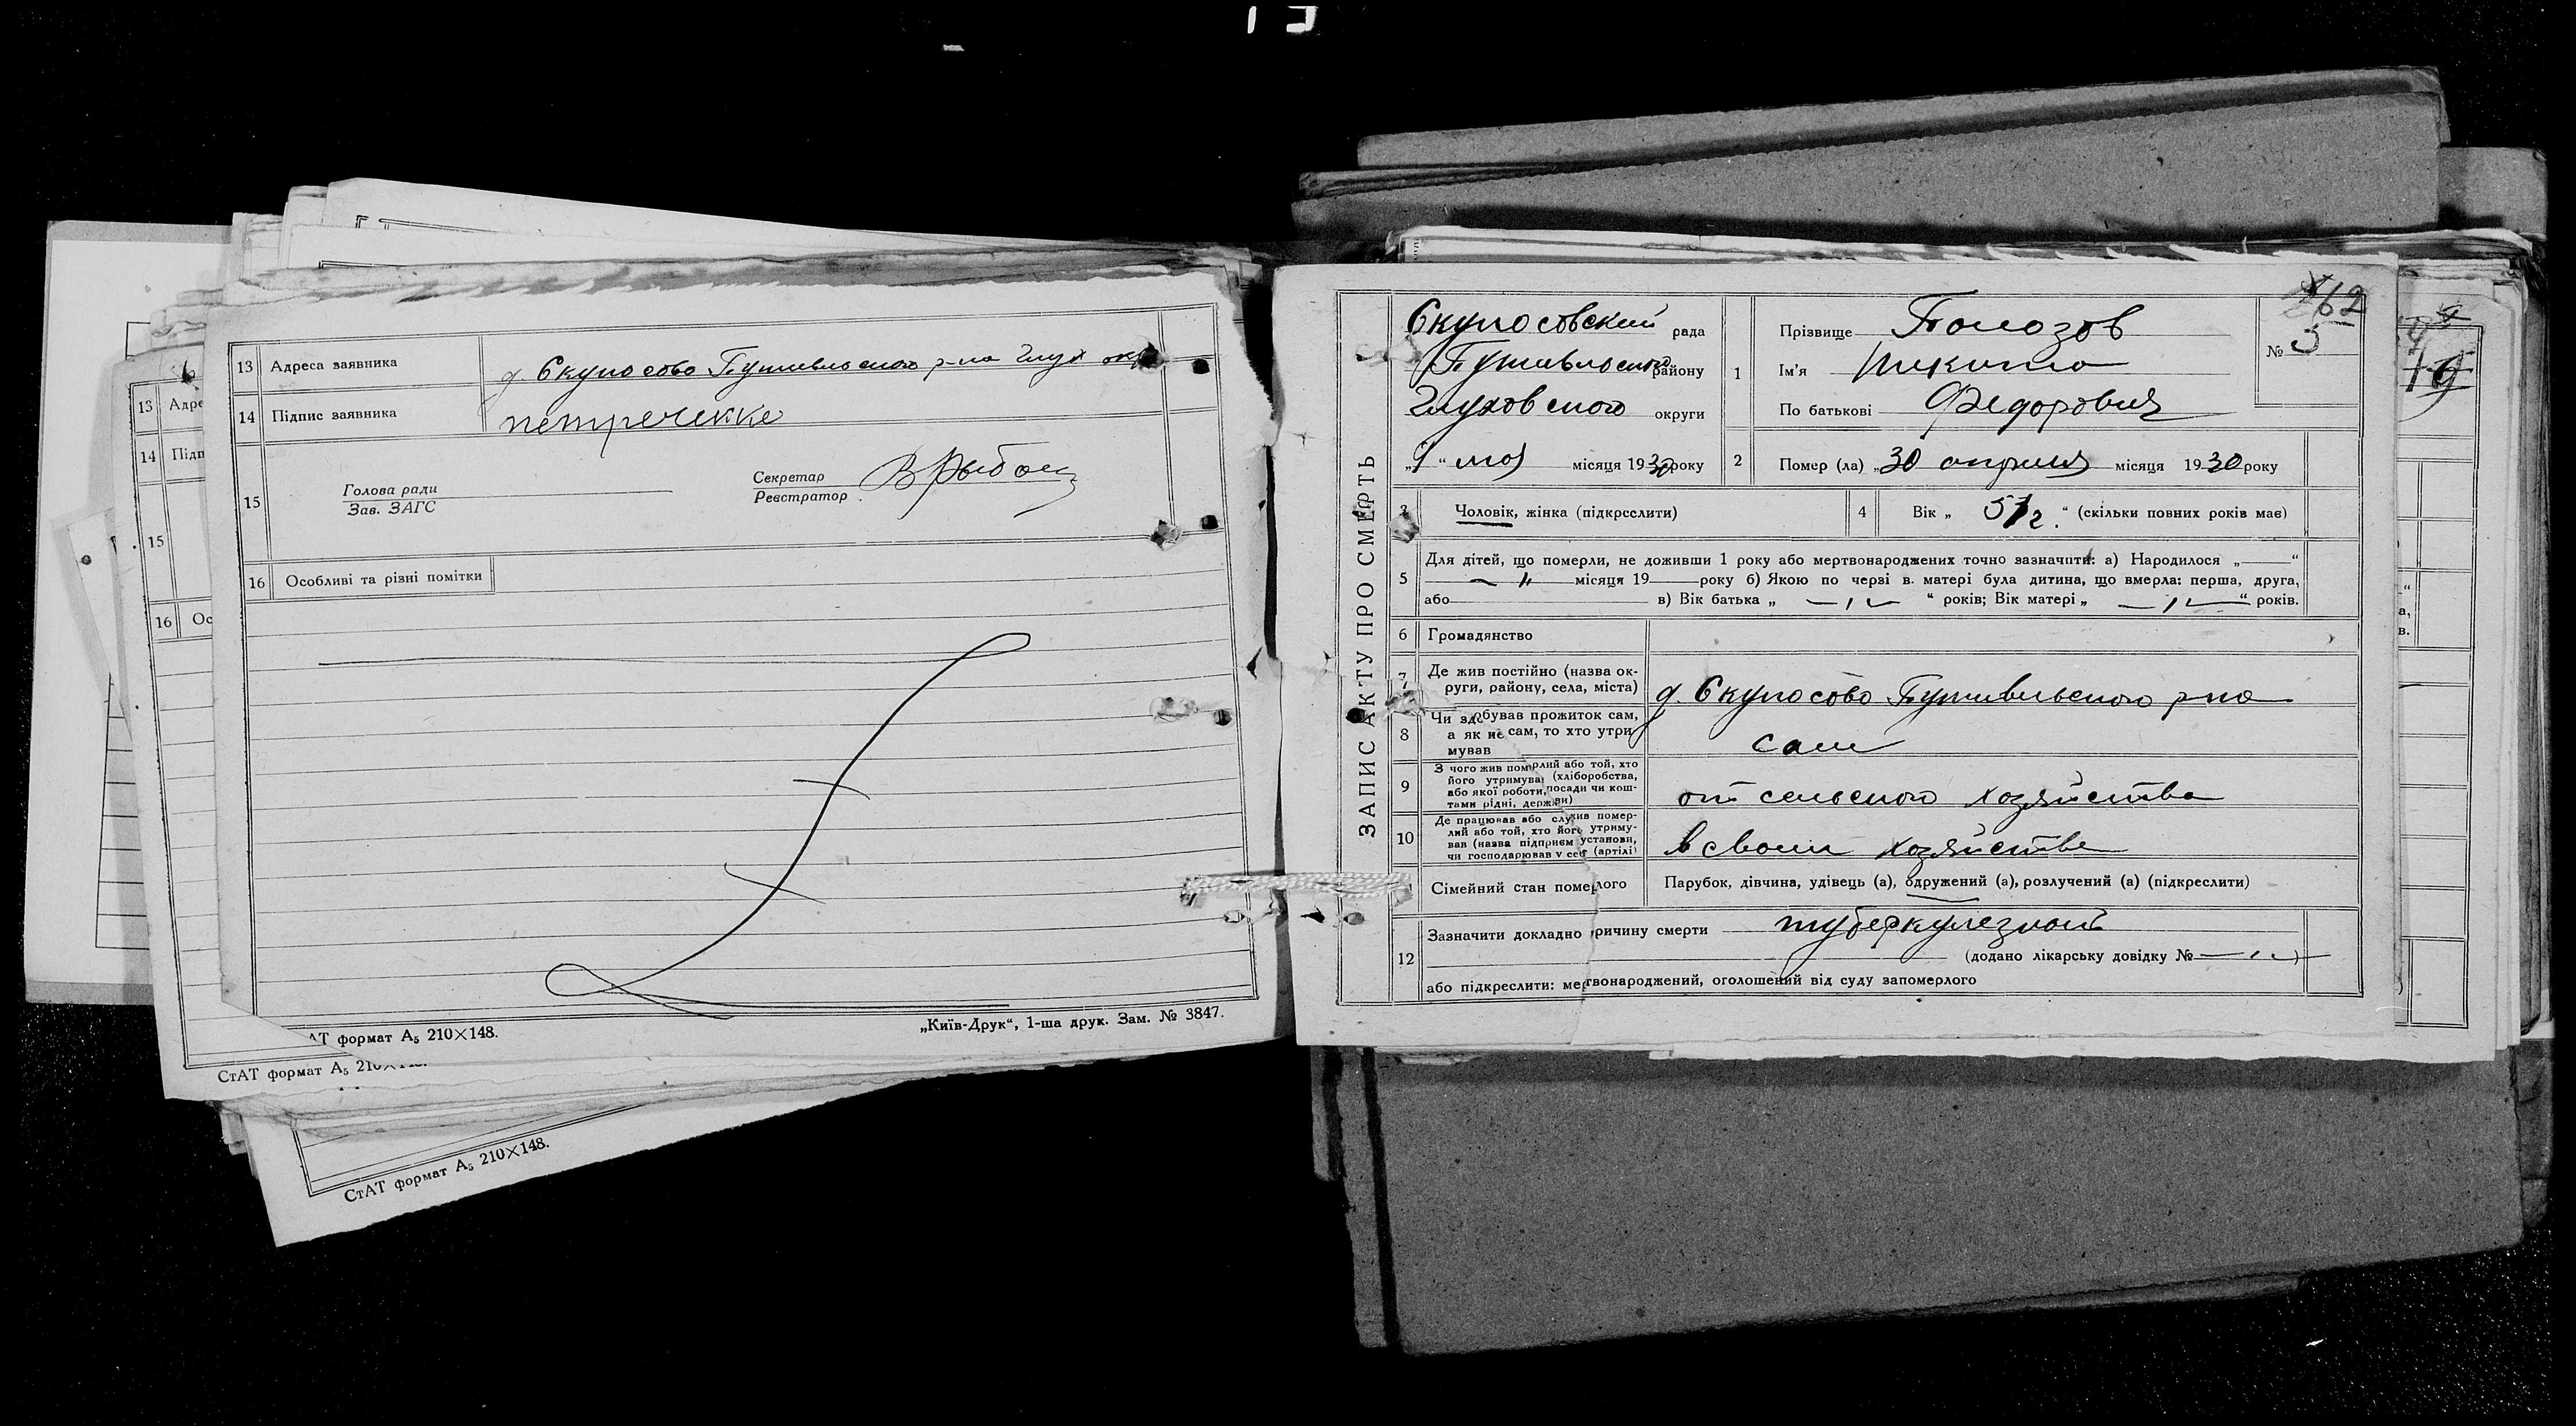 13 Адреса заявника д. Скуносово Путивльского р-на Глух окр
14 Підпис заявника петреченко
15 Голова ради
Зав. ЗАГС
Секретар
Реєстратор
16 Особливі та різні помітки
АТ формат А5 210×148.
„Київ-Друк“, 1-ша друк. Зам. № 3847.
13 Адре
14 Підп
15
16 Ос
СтАТ формат А5
СтАТ формат А5 210×148.
ЗАПИС АКТУ ПРО СМЕРТЬ
62
Скуносовский рада
Путивльского району
Глуховского округи
„1“ мая місяця 1930 року
1 Прізвище Полозов
Ім'я Никита
По батькові Федорович
№ 3
2 Помер (ла) „30 апреля місяця 1930 року
3 Чоловік, жінка (підкреслити)
4 Вік „ “ (скільки повних років має)
5 Для дітей, що померли, не доживши 1 року або мертвонароджених точно зазначити: а) Народилося „—“
— „ — місяця 19 — року б) Якою по черзі в матері була дитина, що вмерла: перша, друга,
або — в) Вік батька „ — “ років; Вік матері „ — “ років.
6 Громадянство
7 Де жив постійно (назва ок-
руги, району, села, міста) д. Скуносово Путивльского р-на
8 Чи здобував прожиток сам,
а як не сам, то хто утри
мував сам
9 З чого жив померлий або той, хто
його утримував (хліборобства,
або якої роботи, посади чи кош-
тами рідні, держави) от сельского хозяйства
10 Де працював або служив помер-
лий або той, хто його утриму-
вав (назва підприєм установи,
чи господарював у себе (артілі) в своем хозяйстве
Сімейний стан померлого Парубок, дівчина, удівець (а), одружений (а), розлучений (а) (підкреслити)
12 Зазначити докладно причину смерти туберкулезной
(додано лікарську довідку № — )
або підкреслити: мертвонароджений, оголошений від суду запомерлого